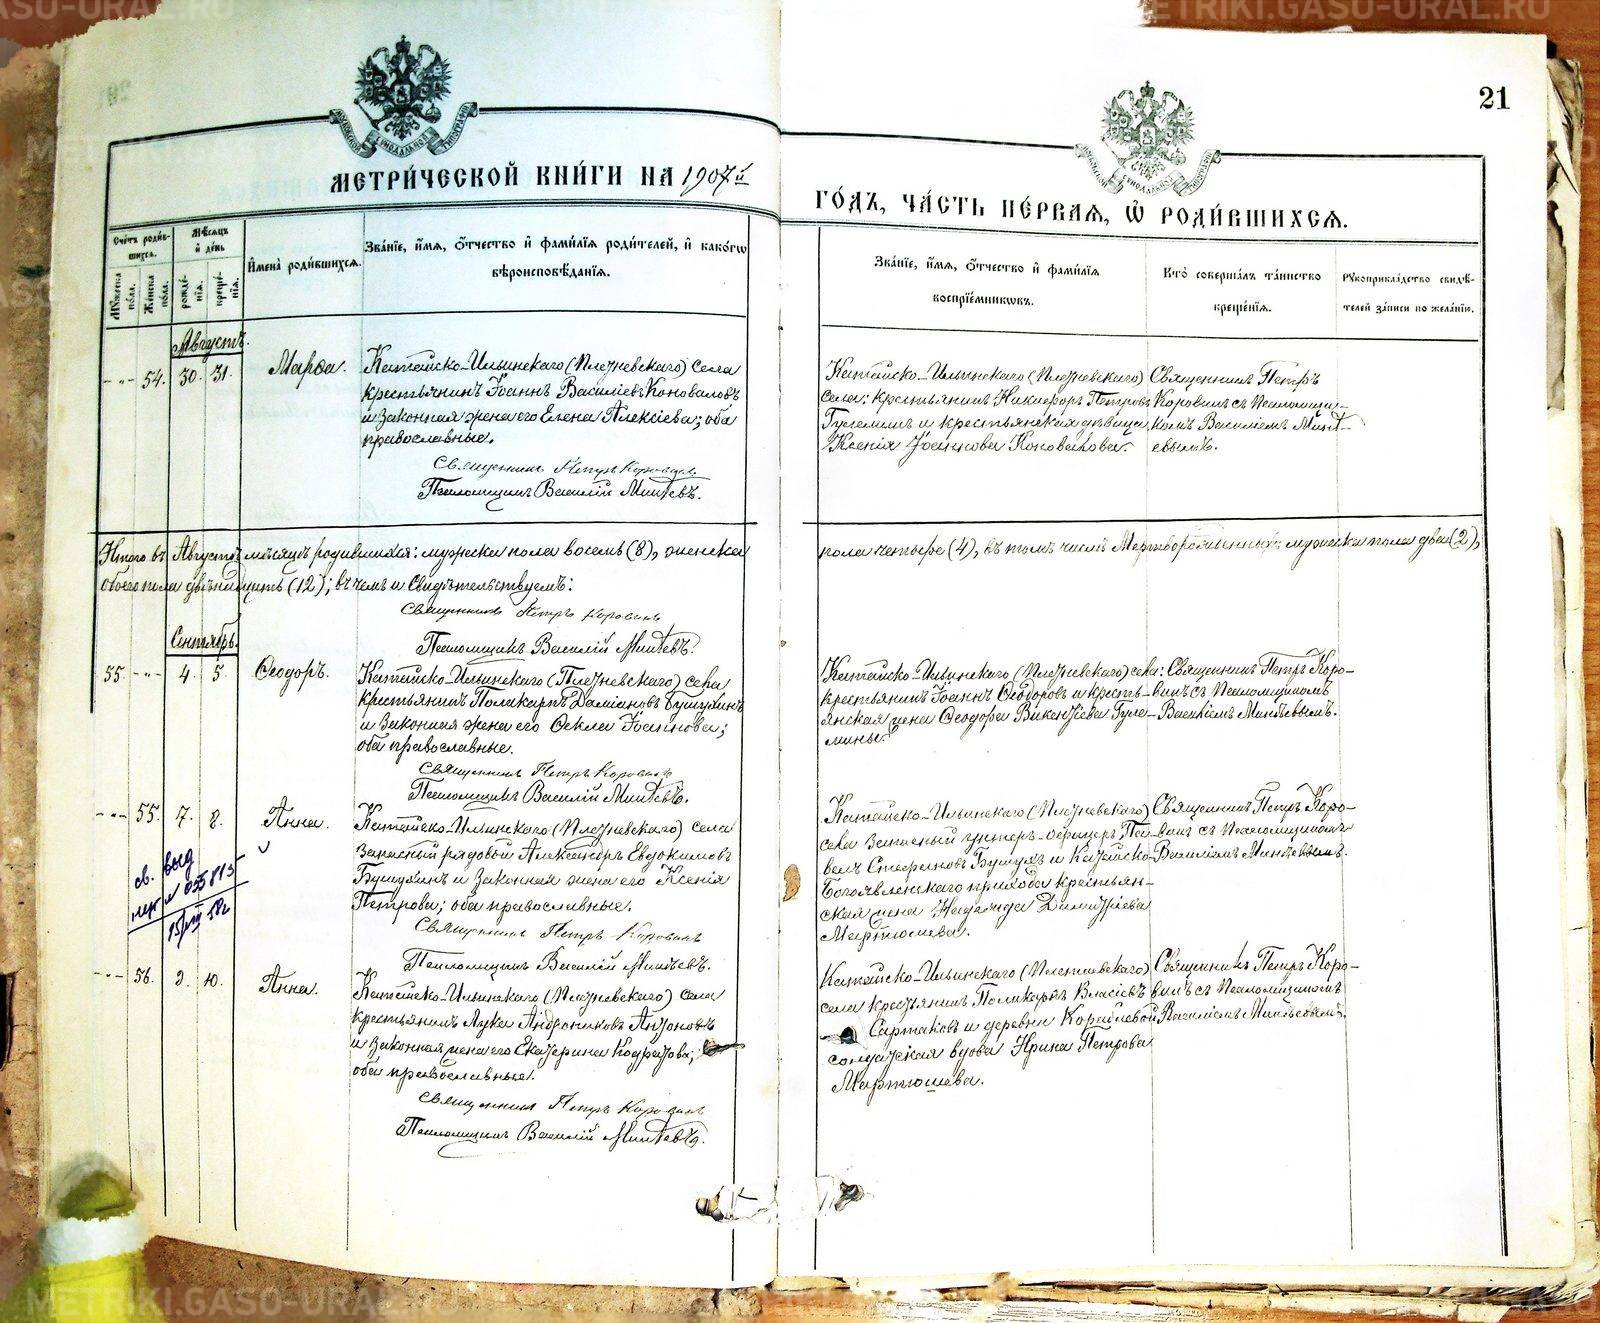 METRIKI.GASU-URAL.RU
METRIKI.GASU-URAL.RU
21
МОСКОВСКОЙ СѴНОДАЛЬНОЙ ТИПОГРАФІИ
МОСКОВСКОЙ СѴНОДАЛЬНОЙ ТИПОГРАФІИ
МЕТРИ́ЧЕСКОЙ КНИ́ГИ НА 1907й
ГО́ДЪ, ЧА́СТЬ ПЕ́РВАѦ, Ѡ҆ РОДИ́ВШИХСѦ.
Сче́тъ роди́вшихсѧ.
Мꙋ́жеска по́ла.
Же́нска по́ла.
Мѣ́сѧцъ и҆ де́нь
рожде́нїѧ.
креще́нїѧ.
И҆мена̀ роди́вшихсѧ.
Зва́нїе, и҆́мѧ, ѻ҆́тчество и҆ фами́лїѧ роди́телей, и҆ како́гѡ
вѣроисповѣ́данїѧ.
Зва́нїе, и҆́мѧ, ѻ҆́тчество и҆ фами́лїѧ
воспрїе́мникѡвъ.
Кто̀ соверша́лъ та́инство
креще́нїѧ.
Рꙋкоприкла́дство свидѣ́-
телей за́писи по жела́нїю.
Августъ.
-"- 54. 30. 31. Марѳа.
Катайско-Ильинскаго (Плетневскаго) села
крестьянинъ Іоаннъ Василіевъ Коноваловъ
и законная жена его Елена Алексіева; оба
православные.
Священникъ Петръ Коровинъ
Псаломщикъ Василій Минѣевъ.
Катайско-Ильинскаго (Плетневскаго)
села: крестьянинъ Никифоръ Петровъ
и крестьянская дѣвица
Ксенія Іоаннова Коновалова.
Священникъ Петръ
Коровинъ съ псаломщи-
комъ Василіемъ Минѣ-
евымъ.
Итого въ Августѣ мѣсяцѣ родившихся: мужска пола восемь (8), женска
пола четыре (4), въ томъ числѣ мертворожденныхъ: мужска пола два (2),
обоего пола двѣнадцать (12); въ чемъ и свидѣтельствуемъ:
Священникъ Петръ Коровинъ
Псаломщикъ Василій Минѣевъ.
Сентябрь.
55. -"- 4. 5. Ѳеодоръ.
Катайско-Ильинскаго (Плетневскаго) села
крестьянинъ Поликарпъ Даміановъ Бушухинъ
и законная жена его Ѳекла Іоаннова;
оба православные.
Священникъ Петръ Коровинъ
Псаломщикъ Василій Минѣевъ.
Катайско-Ильинскаго (Плетневскаго) села:
крестьянинъ Іоаннъ Ѳеодоровъ и кресть-
янская жена Ѳеодора Викентіева Гуле-
мины.
Священникъ Петръ Коро-
винъ съ псаломщикомъ
Василіемъ Минѣевымъ.
-"- 55. 7. 8. Анна.
св. выд
15/VII 58г
Катайско-Ильинскаго (Плетневскаго) села
запасный рядовой Александръ Евдокимовъ
Бушухинъ и законная жена его Ксенія
Петрова; оба православные.
Священникъ Петръ Коровинъ
Псаломщикъ Василій Минѣевъ.
Катайско-Ильинскаго (Плетневскаго)
села запасный унтеръ-офицеръ Па-
велъ Стефановъ и Катайско-
Богоявленскаго прихода крестьян-
ская жена Надежда Димитріева
Мартюшева.
Священникъ Петръ Коро-
винъ съ псаломщикомъ
Василіемъ Минѣевымъ.
-"- 56. 9. 10. Анна.
Катайско-Ильинскаго (Плетневскаго) села
крестьянинъ Лука Андрониковъ Антоновъ
и законная жена его Екатерина Кодратова;
оба православные.
Священникъ Петръ Коровинъ
Псаломщикъ Василій Минѣевъ.
Катайско-Ильинскаго (Плетневскаго)
села крестьянинъ Поликарпъ Власіевъ
Сартаковъ и деревни Кораблевой
солдатская вдова Ирина Петрова
Мартюшева.
Священникъ Петръ Коро-
винъ съ псаломщикомъ
Василіемъ Минѣевымъ.
METRIKI.GASU-URAL.RU